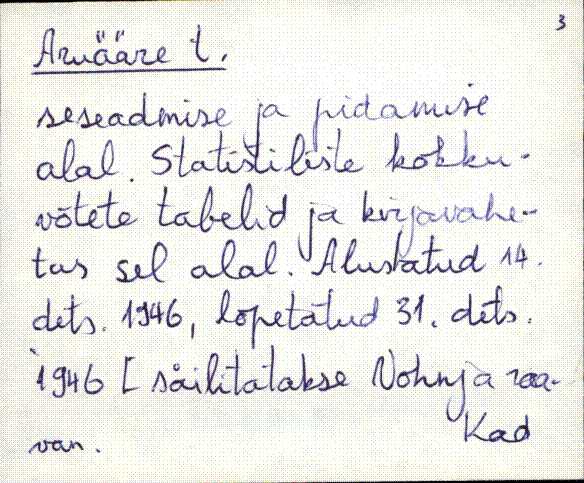 3
Aruääre t.
seseadmise ja pidamise
alal. Statistiliste kokku-
võtete tabelid ja kirjavahe-
tus sel alal. Alustatud 14.
dets. 1946, lõpetatud 31. dets.
1946 [ säilitatakse Vohnja raa-
van.
Kad